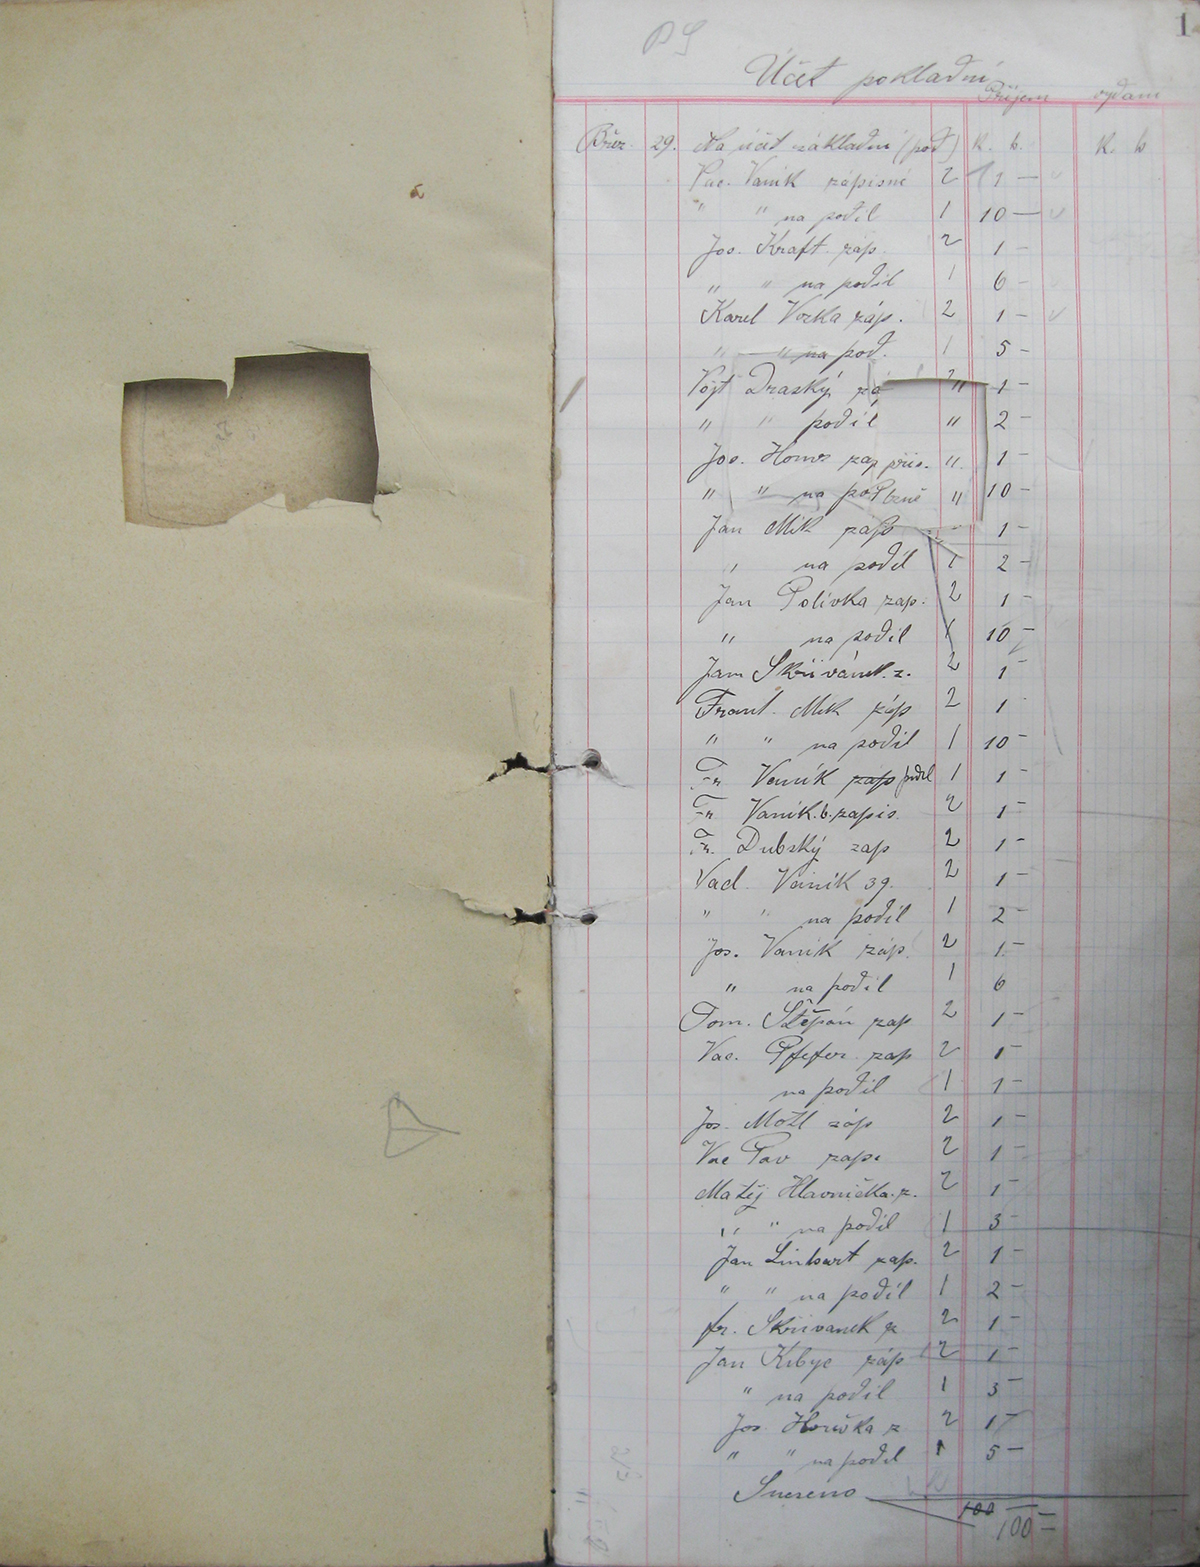 1
PS
Účet pokladní
Příjem vydání
Břez. 29. Na účet základní (pod) K. h. K. h
Vac. Vaník zápisné 2 1 —
" " na podíl 1 10 —
Jos. Kraft zap. 2 1 -
" " na podíl 1 6 -
Karel Vozka záp. 2 1 -
" " na pod. 1 5 -
Vojt Draský zá " 1 -
" " podíl " 2 -
Jos. Homr zap " 1 -
" " na po " 10 -
Jan Mik záp 1 -
" na podíl 1 2 -
Jan Polívka zap. 2 1 -
" na podíl 1 10 -
Jan Skřivánek z. 2 1 -
Frant. Mik záp 2 1 -
" " na podíl 1 10 -
Fr Vaník záp podíl 1 1 -
Fr Vaník. b. zapis. 2 1 -
Fr. Dubský zap 2 1 -
Vacl. Vaník 39. 2 1 -
" " na podíl 1 2 -
Jos. Vaník záp. 2 1 -
" na podíl 1 6
Tom. Štěpán zap 2 1 -
Vac. Pfefer zap 2 1 -
na podíl 1 1 -
Jos. Motl záp 2 1 -
Vac Pav zap. 2 1 -
Matěj Hlavnička. z. 2 1 -
" " na podíl 1 3 -
Jan Linhart zap. 2 1 -
" " na podíl 1 2 -
fr. Skřivanek z 2 1 -
Jan Krbyc záp 2 1 -
" na podíl 1 3 -
Jos Horička z 2 1 -
" " na podíl 1 5 -
Sneseno 100 —
100 =